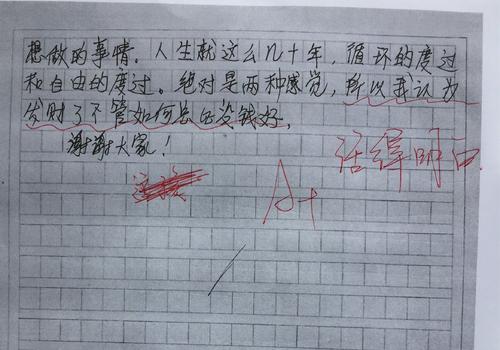 想做的事情。人生就这么几十年，循环的度过
和自由的度过。绝对是两种感觉，所以我认为
发财了不管如何总比没钱好。
谢谢大家！
A+
活得明白